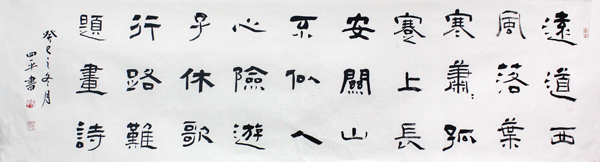 遠道西
風落葉
寒蕭〻孤
蹇上長
安關山
不似人
心險遊
子休歌
行路難
題畫詩
癸巳之冬月
四平書